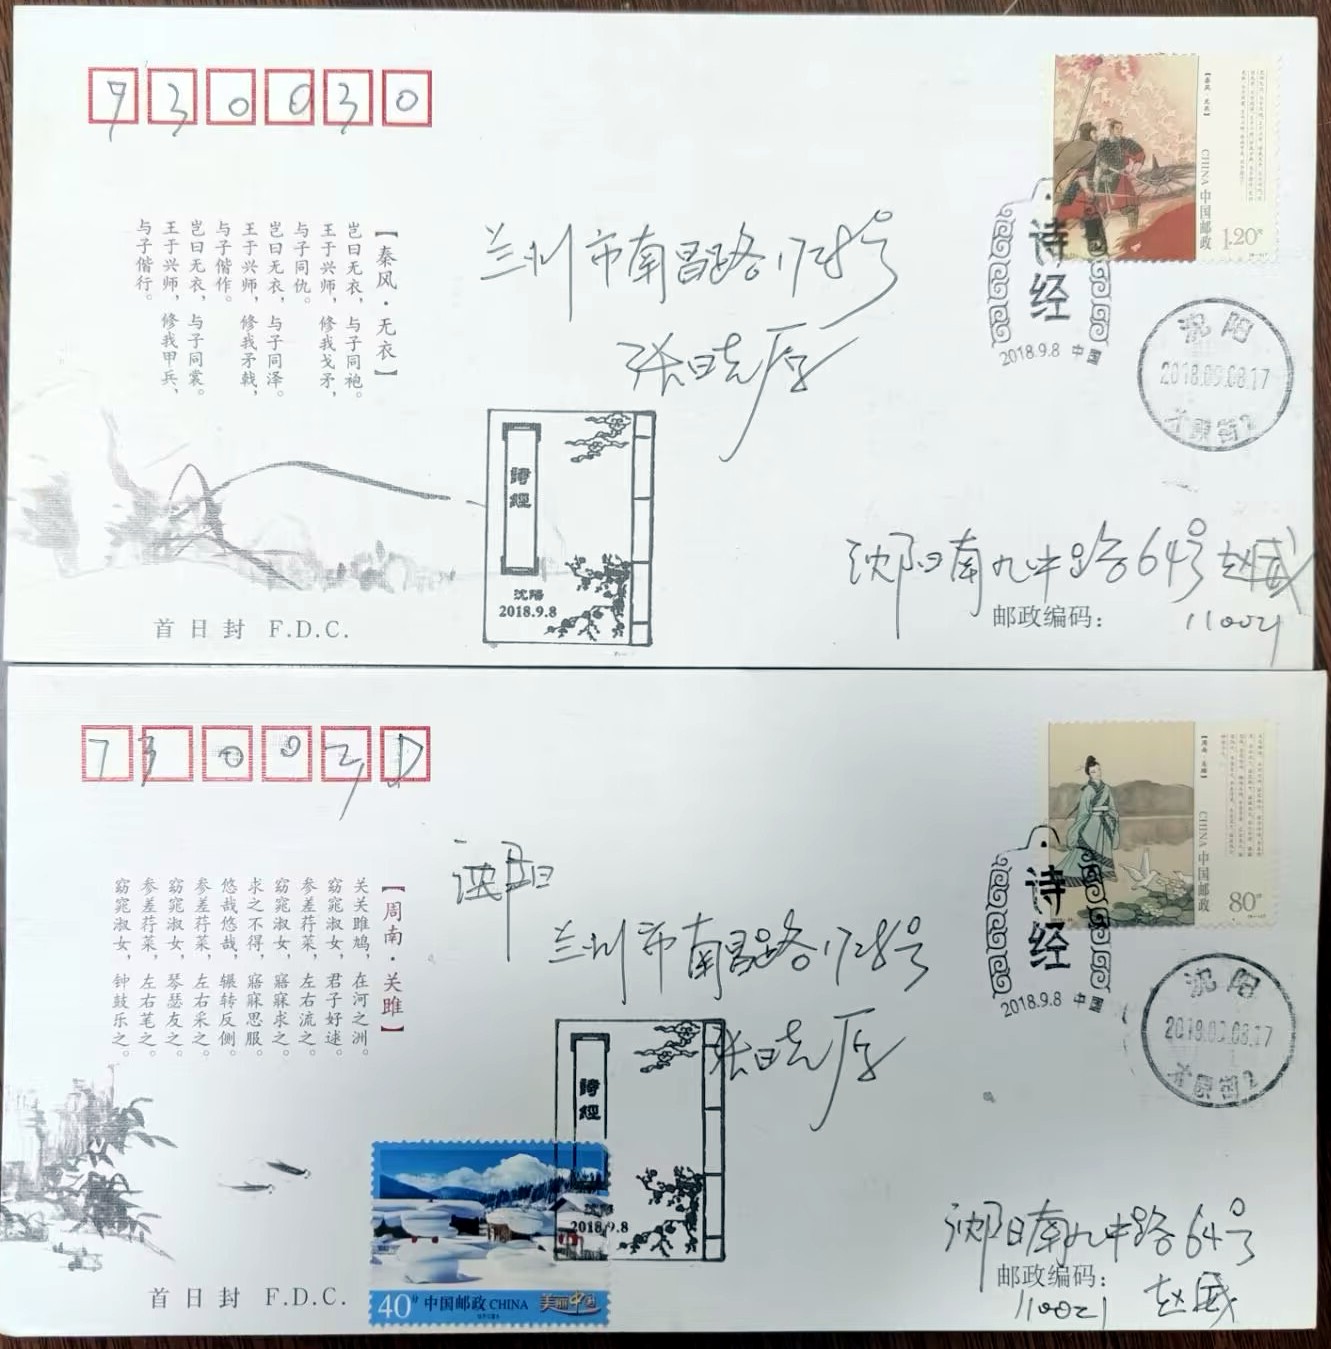 730030
【秦风·无衣】
岂曰无衣，与子同袍。
王于兴师，修我戈矛，
与子同仇。
岂曰无衣，与子同泽。
王于兴师，修我矛戟，
与子偕作。
岂曰无衣，与子同裳。
王于兴师，修我甲兵，
与子偕行。
首日封 F.D.C.
兰州市南昌路1728号
张晓
詩經
沈阳
2018.9.8
【秦风·无衣】
CHINA 中国邮政
1.20元
诗经
2018.9.8 中国
沈阳
2018.09.08.17
太原街2
沈阳南九中路64号 赵威
邮政编码：
110021
730020
【周南·关雎】
关关雎鸠，在河之洲。
窈窕淑女，君子好逑。
参差荇菜，左右流之。
窈窕淑女，寤寐求之。
求之不得，寤寐思服。
悠哉悠哉，辗转反侧。
参差荇菜，左右采之。
窈窕淑女，琴瑟友之。
参差荇菜，左右笔之。
窈窕淑女，钟鼓乐之。
首日封 F.D.C.
沈阳
兰州市南昌路1728号
张晓
詩經
沈阳
2018.9.8
40分 中国邮政 CHINA 美丽中国
【周南·关雎】
CHINA 中国邮政
80分
诗经
2018.9.8 中国
沈阳
2018.09.08.17
太原街2
沈阳南九中路64号
邮政编码：
110021 赵威